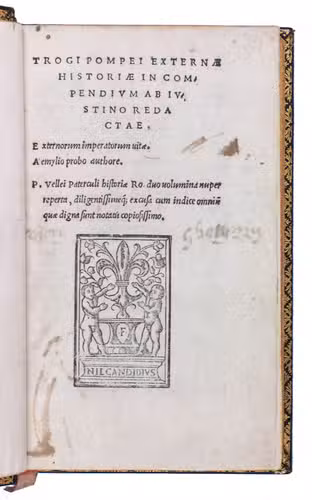 TROGI POMPEI EXTERNÆ
HISTORIÆ IN COM,
PENDIVM AB IV,
STINO REDA
CTAE,
Externorum imperatorum uitæ.
Aemylio probo authore.
P. Vellei Paterculi historiæ Ro. duo volumina nuper
reperta, diligentissimeq; excusa cum indice omniũ
quæ digna sunt notatu copiosissimo.
F
NIL CANDIDIVS